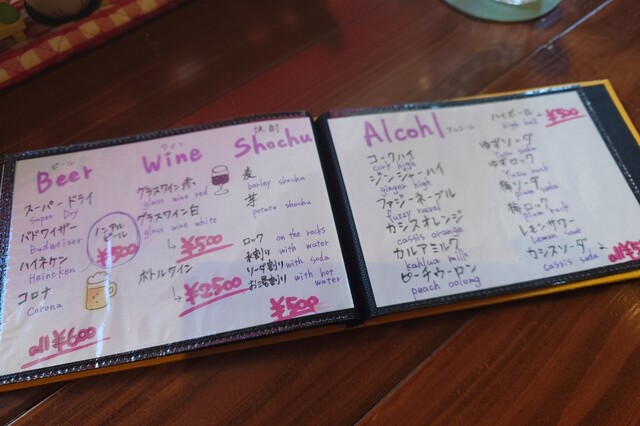 ビール
Beer
スーパードライ
Super Dry
バドワイザー
Budweiser
ハイネケン
Heineken
コロナ
Corona
all ¥600
ノンアルビール
¥500
ワイン
Wine
グラスワイン赤
glass wine red
グラスワイン白
glass wine white
↳ ¥500
ボトルワイン
↳ ¥2500
焼酎
Shochu
麦
barley shochu
芋
potato shochu
ロック on the rocks
水割り with water
ソーダ割り with soda
お湯割り with hot water
¥500
Alcohl アルコール
コークハイ
cork high
ジンジャーハイ
ginger high
ファジーネーブル
fuzzy navel
カシスオレンジ
cassis orange
カルアミルク
kahlua milk
ピーチウーロン
peach oolong
ハイボール
high ball
¥500
ゆずソーダ
Yuzu soda
ゆずロック
Yuzu rock
梅ソーダ
plum soda
梅ロック
plum rock
レモンサワー
Lemon sour
カシスソーダ
cassis soda